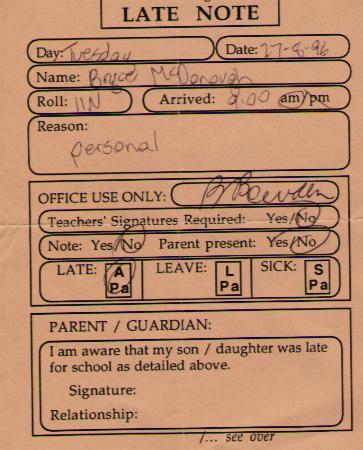 LATE NOTE
Day: Tuesday Date: 27-8-96
Name: Bryce McDonough
Roll: 11N Arrived: 9.00 am/pm
Reason:
personal
OFFICE USE ONLY: B Bowden
Teachers' Signatures Required: Yes/No
Note: Yes/No Parent present: Yes/No
LATE: A Pa LEAVE: L Pa SICK: S Pa
PARENT / GUARDIAN:
I am aware that my son / daughter was late
for school as detailed above.
Signature:
Relationship:
/... see over